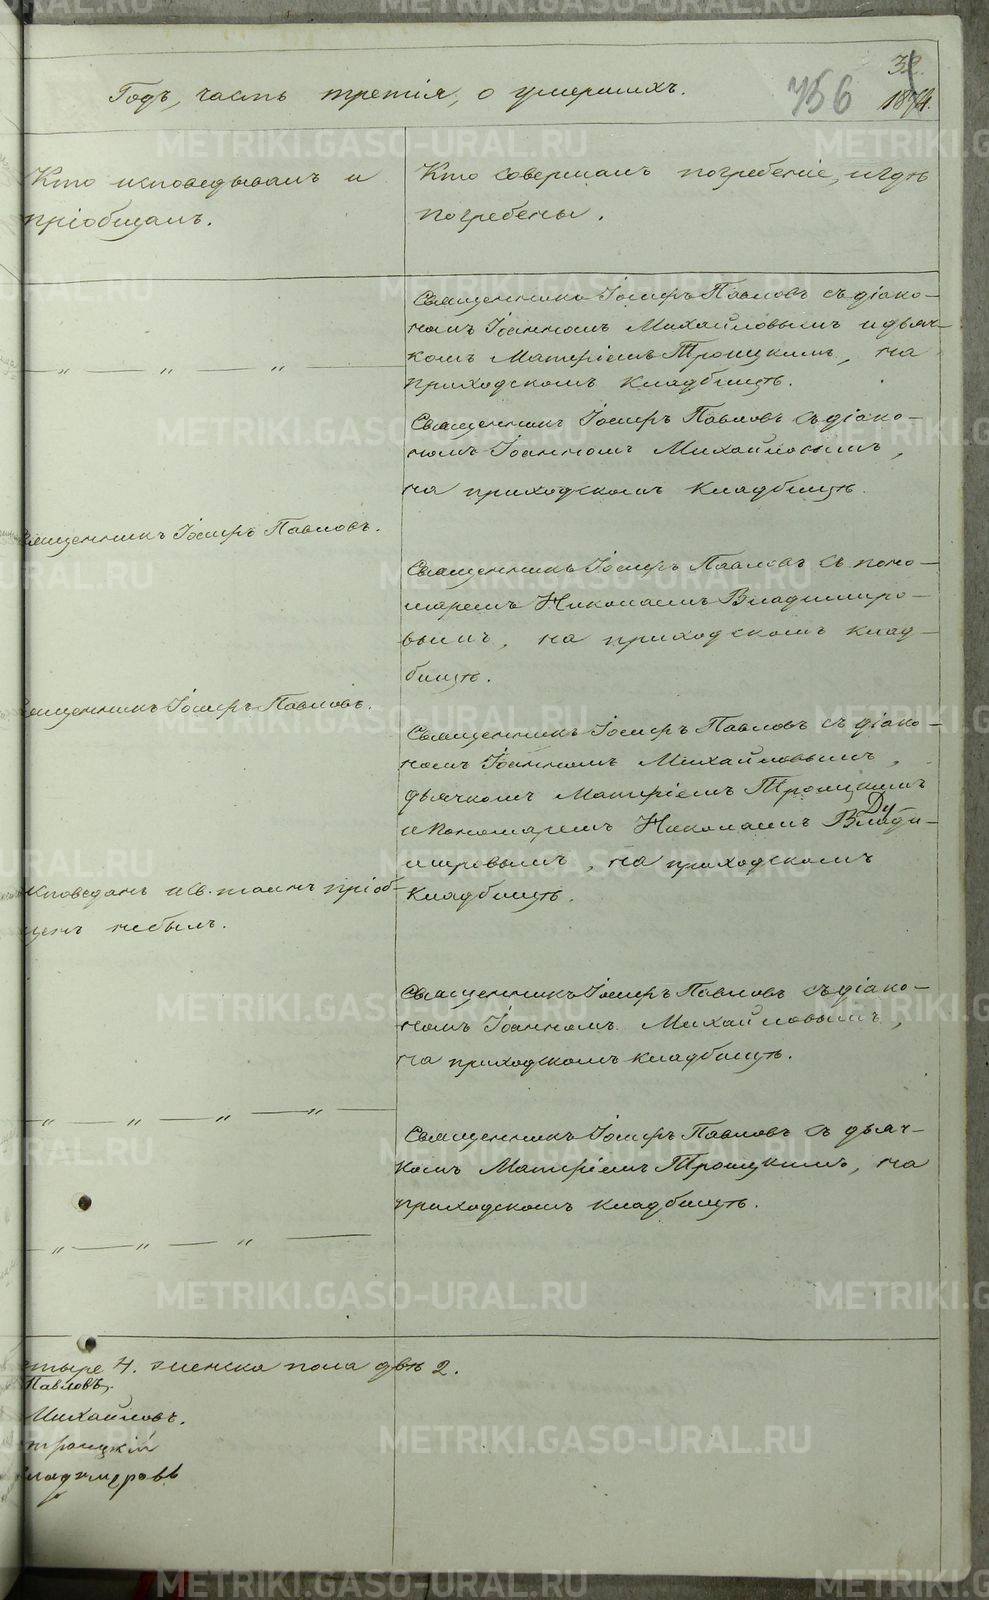 Годъ, часть третія, о умершихъ.
756
32
1874.
Кто исповѣдывалъ и
пріобщалъ.
Кто совершалъ погребеніе, и гдѣ
погребены.
Священникъ Іосифъ Павловъ съ діако-
номъ Іоанномъ Михайловымъ и дьяч-
комъ Матфіемъ Троицкимъ, на
приходскомъ кладбищѣ.
— „ — „ — „ —
Священникъ Іосифъ Павловъ съ діако-
номъ Іоанномъ Михайловымъ,
на приходскомъ кладбищѣ.
Священникъ Іосифъ Павловъ.
Священникъ Іосифъ Павловъ съ поно-
маремъ Николаемъ Владиміро-
вымъ, на приходскомъ клад-
бищѣ.
Священникъ Іосифъ Павловъ.
Священникъ Іосифъ Павловъ съ діако-
номъ Іоанномъ Михайловымъ,
дьячкомъ Матфіемъ Троицкимъ
и пономаремъ Николаемъ Влади-
міровымъ, на приходскомъ
кладбищѣ.
исповѣданъ и св. таинъ пріоб-
щенъ небылъ.
Священникъ Іосифъ Павловъ съ діако-
номъ Іоанномъ Михайловымъ,
на приходскомъ кладбищѣ.
— „ — „ — „ — „ —
Священникъ Іосифъ Павловъ съ дьяч-
комъ Матфіемъ Троицкимъ, на
приходскомъ кладбищѣ.
— „ — „ — „ —
тыре 4. женска пола двѣ 2.
Павловъ.
Михайловъ.
Троицкій
Владимировъ
METRIKI.GASO-URAL.RU